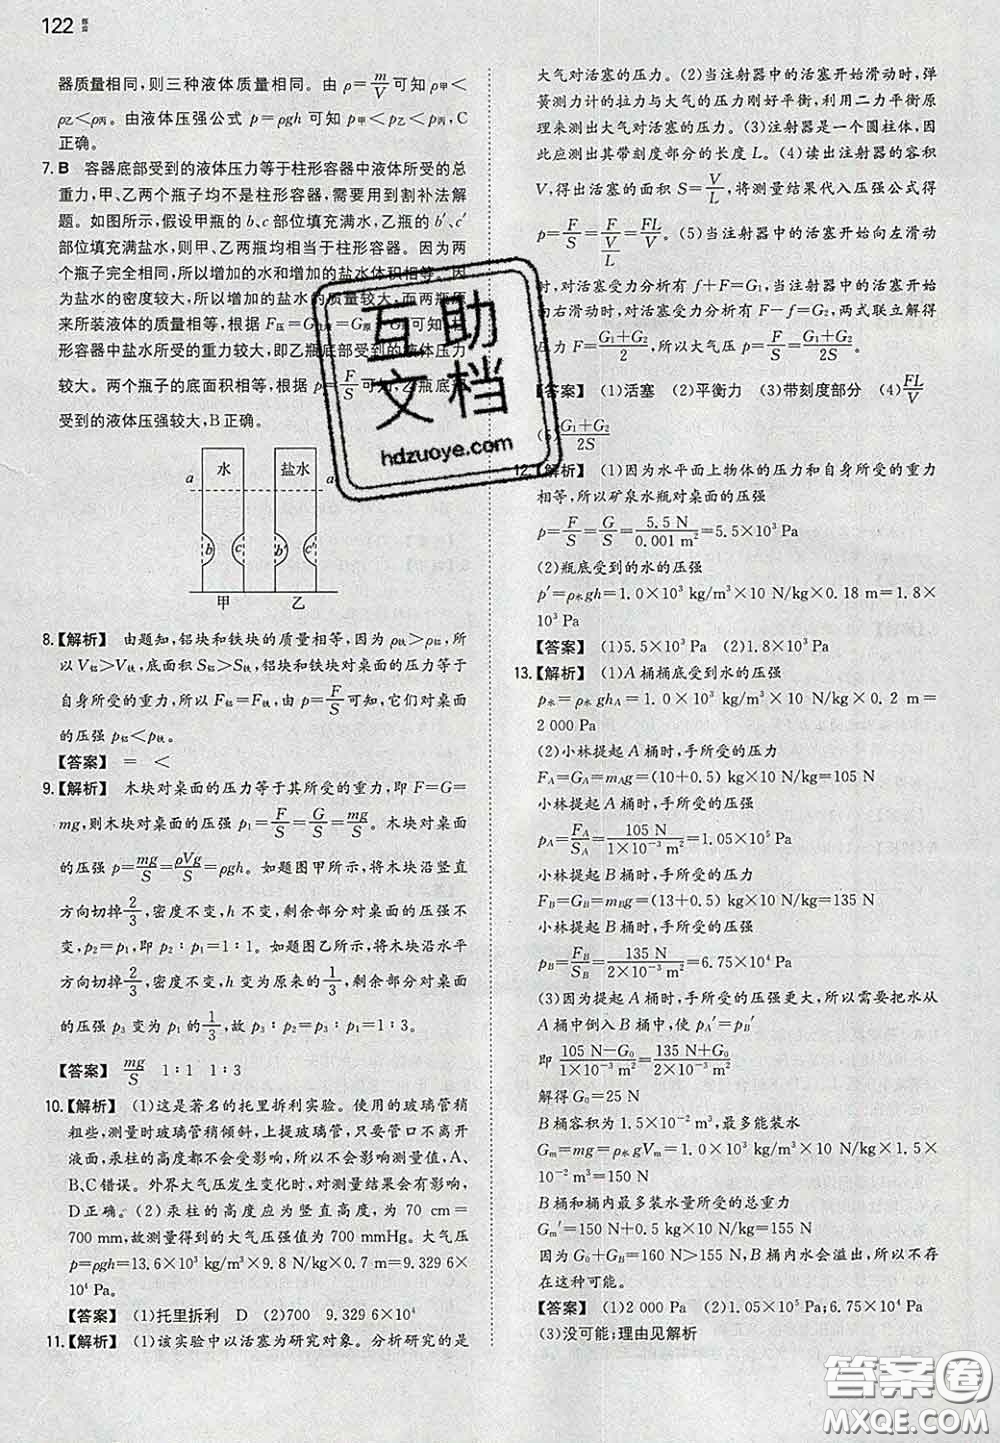 122 
器质量相同,则三种液体质量相同。由 ρ=m/V 可知 ρ甲<
ρ乙<ρ丙。由液体压强公式 p=ρgh 可知 p甲<p乙<p丙,C
正确。
7. B 容器底部受到的液体压力等于柱形容器中液体所受的总
重力,甲、乙两个瓶子均不是柱形容器,需要用到割补法解
题。如图所示,假设甲瓶的 b、c 部位填充满水,乙瓶的 b′、c′
部位填充满盐水,则甲、乙两瓶均相当于柱形容器。因为两
个瓶子完全相同,所以增加的水和增加的盐水体积相等。因
为盐水的密度较大,所以增加的盐水的质量较大,而两瓶原
来所装液体的质量相等,根据 F压=G =G原+G 可知,
形容器中盐水所受的重力较大,即乙瓶底部受到的液体压力
较大。两个瓶子的底面积相等,根据 p=F/S 可知,乙瓶底
受到的液体压强较大,B 正确。
水 盐水
a a
b c b′ c′
甲 乙
8.【解析】 由题知,铝块和铁块的质量相等,因为 ρ铁>ρ铝,所
以 V铝>V铁,底面积 S铝>S铁,铝块和铁块对桌面的压力等于
自身所受的重力,所以 F铝=F铁,根据 p=F/S 可知,它们对桌面
的压强 p铝<p铁。
【答案】 = <
9.【解析】 木块对桌面的压力等于其所受的重力,即 F=G=
mg,则木块对桌面的压强 p1=F/S=G/S=mg/S。木块对桌面
的压强 p=mg/S=ρVg/S=ρgh。如题图甲所示,将木块沿竖直
方向切掉2/3,密度不变,h 不变,剩余部分对桌面的压强不
变,p2=p1,即 p2∶p1=1∶1。如题图乙所示,将木块沿水平
方向切掉2/3,密度不变,h 变为原来的1/3,剩余部分对桌面
的压强 p3 变为 p1 的1/3,故 p3∶p1=1∶3。
【答案】 mg/S 1∶1 1∶3
10.【解析】 (1)这是著名的托里拆利实验。使用的玻璃管稍
粗些,测量时玻璃管稍倾斜,上提玻璃管,只要管口不离开
液面,汞柱的高度都不会受影响,所以不影响测量值,A、
B、C 错误。外界大气压发生变化时,对测量结果有影响,
D正确。(2)汞柱的高度应为竖直高度,为 70 cm=
700 mm,故测量得到的大气压强值为 700 mmHg。大气压
p=ρgh=13.6×10³ kg/m³×9.8 N/kg×0.7 m=9.329 6×
10⁴ Pa。
【答案】 (1)托里拆利 D (2)700 9.329 6×10⁴
11.【解析】 (1)该实验中以活塞为研究对象。分析研究的是
大气对活塞的压力。(2)当注射器中的活塞开始滑动时,弹
簧测力计的拉力与大气的压力刚好平衡,利用二力平衡原
理来测出大气对活塞的压力。(3)注射器是一个圆柱体,因
此应测出其带刻度部分的长度 L。(4)读出注射器的容积
V,得出活塞的面积 S=V/L,将测量结果代入压强公式得
p=F/S=F/(V/L)=FL/V。(5)当注射器中的活塞开始向左滑动
时,对活塞受力分析有 f+F=G1,当注射器中的活塞开始
向右滑动时,对活塞受力分析有 F-f=G2,两式联立解得
压力 F=(G1+G2)/2,所以大气压 p=F/S=(G1+G2)/2S。
【答案】 (1)活塞 (2)平衡力 (3)带刻度部分 (4)FL/V
(5)(G1+G2)/2S
12.【解析】 (1)因为水平面上物体的压力和自身所受的重力
相等,所以矿泉水瓶对桌面的压强
p=F/S=G/S=5.5 N/0.001 m²=5.5×10³ Pa
(2)瓶底受到的水的压强
p′=ρ水gh=1.0×10³ kg/m³×10 N/kg×0.18 m=1.8×
10³ Pa
【答案】 (1)5.5×10³ Pa (2)1.8×10³ Pa
13.【解析】 (1)A 桶桶底受到水的压强
p水=ρ水ghA=1.0×10³ kg/m³×10 N/kg×0.2 m=
2 000 Pa
(2)小林提起 A 桶时,手所受的压力
FA=GA=mAg=(10+0.5) kg×10 N/kg=105 N
小林提起 A 桶时,手所受的压强
pA=FA/SA=105 N/1×10⁻³ m²=1.05×10⁵ Pa
小林提起 B 桶时,手所受的压力
FB=GB=mBg=(13+0.5) kg×10 N/kg=135 N
小林提起 B 桶时,手所受的压强
pB=FB/SB=135 N/2×10⁻³ m²=6.75×10⁴ Pa
(3)因为提起 A 桶时,手所受的压强更大,所以需要把水从
A 桶中倒入 B 桶中,使 pA′=pB′
即 (105 N-G0)/1×10⁻³ m²=(135 N+G0)/2×10⁻³ m²
解得 G0=25 N
B 桶容积为 1.5×10⁻² m³,最多能装水
Gm=mg=ρ水gVm=1.0×10³ kg/m³×10 N/kg×1.5×
10⁻² m³=150 N
B 桶和桶内最多装水量所受的总重力
Gm′=150 N+0.5 kg×10 N/kg=155 N
因为 G0+GB=160 N>155 N,B 桶内水会溢出,所以不存
在这种可能。
【答案】 (1)2 000 Pa (2)1.05×10⁵ Pa;6.75×10⁴ Pa
(3)没可能;理由见解析
互助
文档
hdzuoye.com
答案圈
MXQE.COM